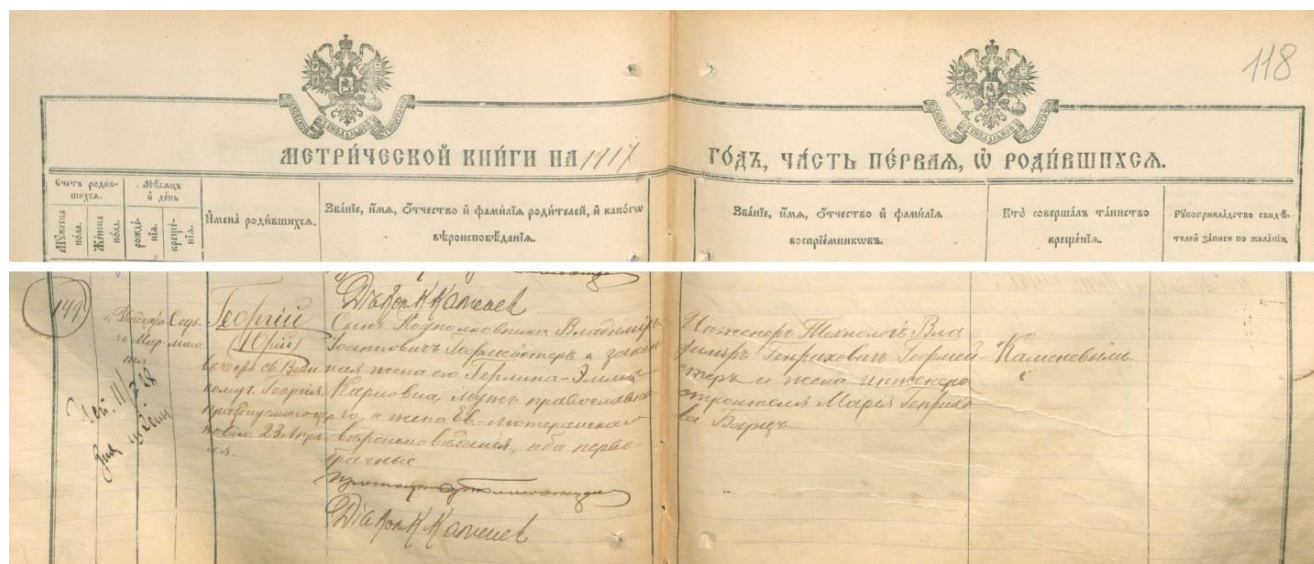 118
МЕТРИ́ЧЕСКОЙ КНИ́ГИ НА 1917 ГО́ДЪ, ЧА́СТЬ ПЕ́РВАЯ, Ѿ РОДИ́ВШИХСЯ.
Счетъ роди́в-
шихся.
Му́жеска
по́ла.
Же́нска
по́ла.
Мѣ́сяцъ
и҆ де́нь
рожде́-
нїя.
креще́-
нїя.
И҆мена̀ роди́вшихся.
Зва́нїе, и҆́мя, ѻ҆́тчество и҆ фами́лїя роди́телей, и҆ како́гѡ
вѣроисповѣ́данїя.
Зва́нїе, и҆́мя, ѻ҆́тчество и҆ фами́лїя
воспрїе́мникѡвъ.
Кто̀ соверша́лъ та́инство
креще́нїя.
Рꙋкоприкла́дство свидѣ́-
телей за́писи по жела́нїю
Діаконъ К Каменев
149
Марта
Седь
маго
Георгій
(Юрій)
въ честь св. Вели
комуч. Георгія
празднуемаго
23 Апрѣ-
ля.
Сынъ Подполковника Владиміръ
Гофмейстеръ и закон
ная жена его
Карловна, мужъ православна
го, а жена Ев.-лютеранскаго
вѣроисповѣданія, оба перво-
брачные.
Діаконъ К Каменев
Инженеръ Технологъ Вла
диміръ Генриховичъ Гофмей-
стеръ и жена инженера
строителя Марія Генрихо
ва
Каменевымъ